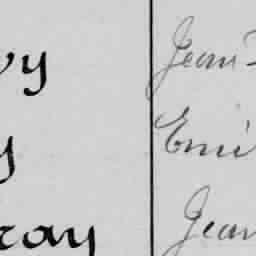 vy Jean-
y Emi
ray Jean